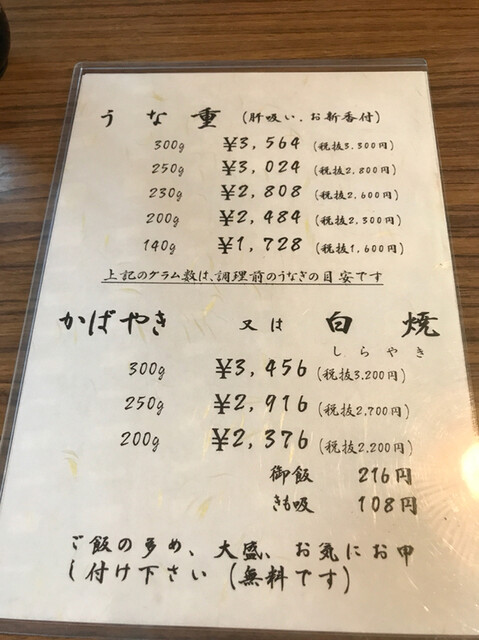 うな重 (肝吸い.お新香付)
300g ¥3,564 (税抜3.300円)
250g ¥3,024 (税抜2.800円)
230g ¥2,808 (税抜2.600円)
200g ¥2,484 (税抜2.300円)
140g ¥1,728 (税抜1.600円)
上記のグラム数は、調理前のうなぎの目安です
かばやき 又は 白焼
しらやき
300g ¥3,456 (税抜3.200円)
250g ¥2,916 (税抜2,700円)
200g ¥2,376 (税抜2.200円)
御飯 216円
きも吸 108円
ご飯の多め、大盛、お気にお申
し付け下さい (無料です)